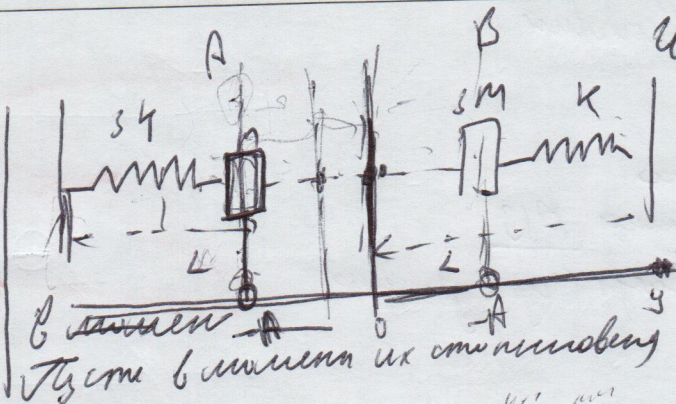 A B
3M K
L L
-A 0 -A y
в момен
Пусть в момент их столкновения